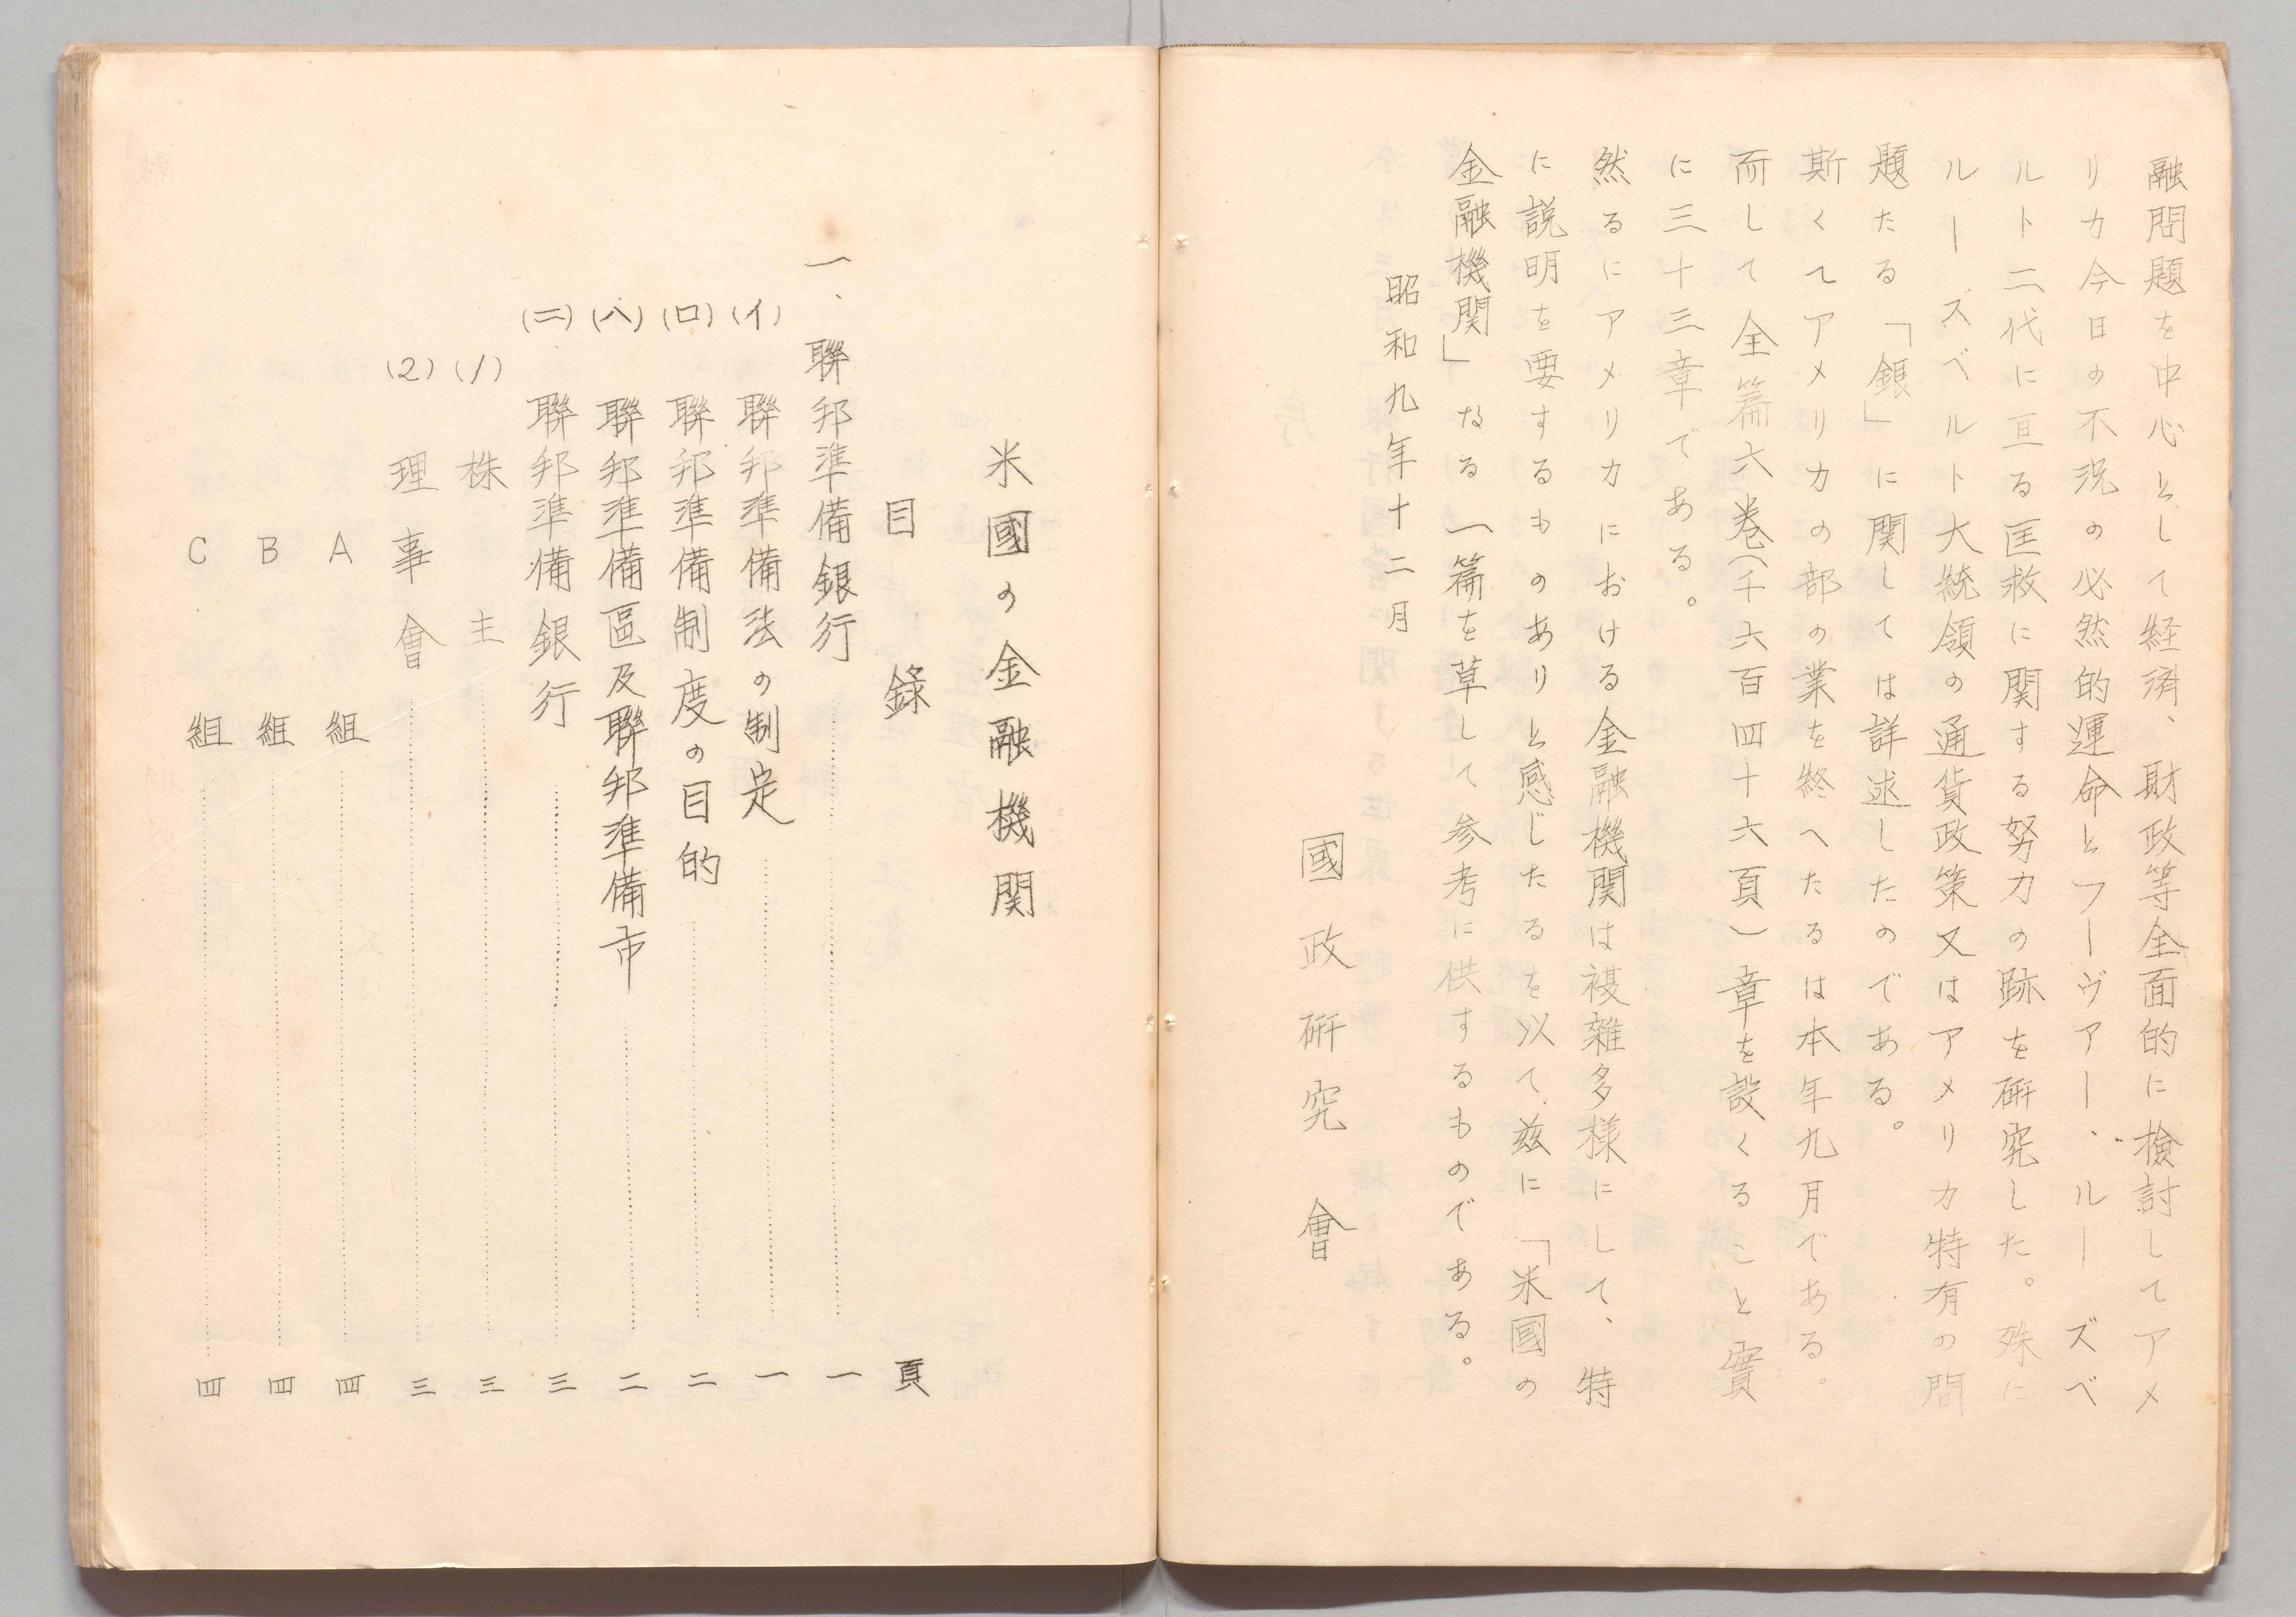 融問題を中心として経済、財政等全面的に檢討してアメ
リカ今日の不況の必然的運命とフーヴァー、ルーズベ
ルト二代に亘る匡救に関する努力の跡を研究した。殊に
ルーズベルト大統領の通貨政策又はアメリカ特有の問
題たる「銀」に関しては詳述したのである。
斯くてアメリカの部の業を終へたるは本年九月である。
而して全篇六巻(千六百四十六頁)章を設くること實
に三十三章である。
然るにアメリカにおける金融機関は複雑多様にして、特
に説明を要するものありと感じたるを以て茲に「米國の
金融機関」なる一篇を草して参考に供するものである。
昭和九年十二月
國政研究會
米國の金融機関
目錄
頁
一、聯邦準備銀行 一
(イ) 聯邦準備法の制定 一
(ロ) 聯邦準備制度の目的 二
(ハ) 聯邦準備區及聯邦準備市 二
(ニ) 聯邦準備銀行 三
(1) 株主 三
(2) 理事會 三
A 組 四
B 組 四
C 組 四